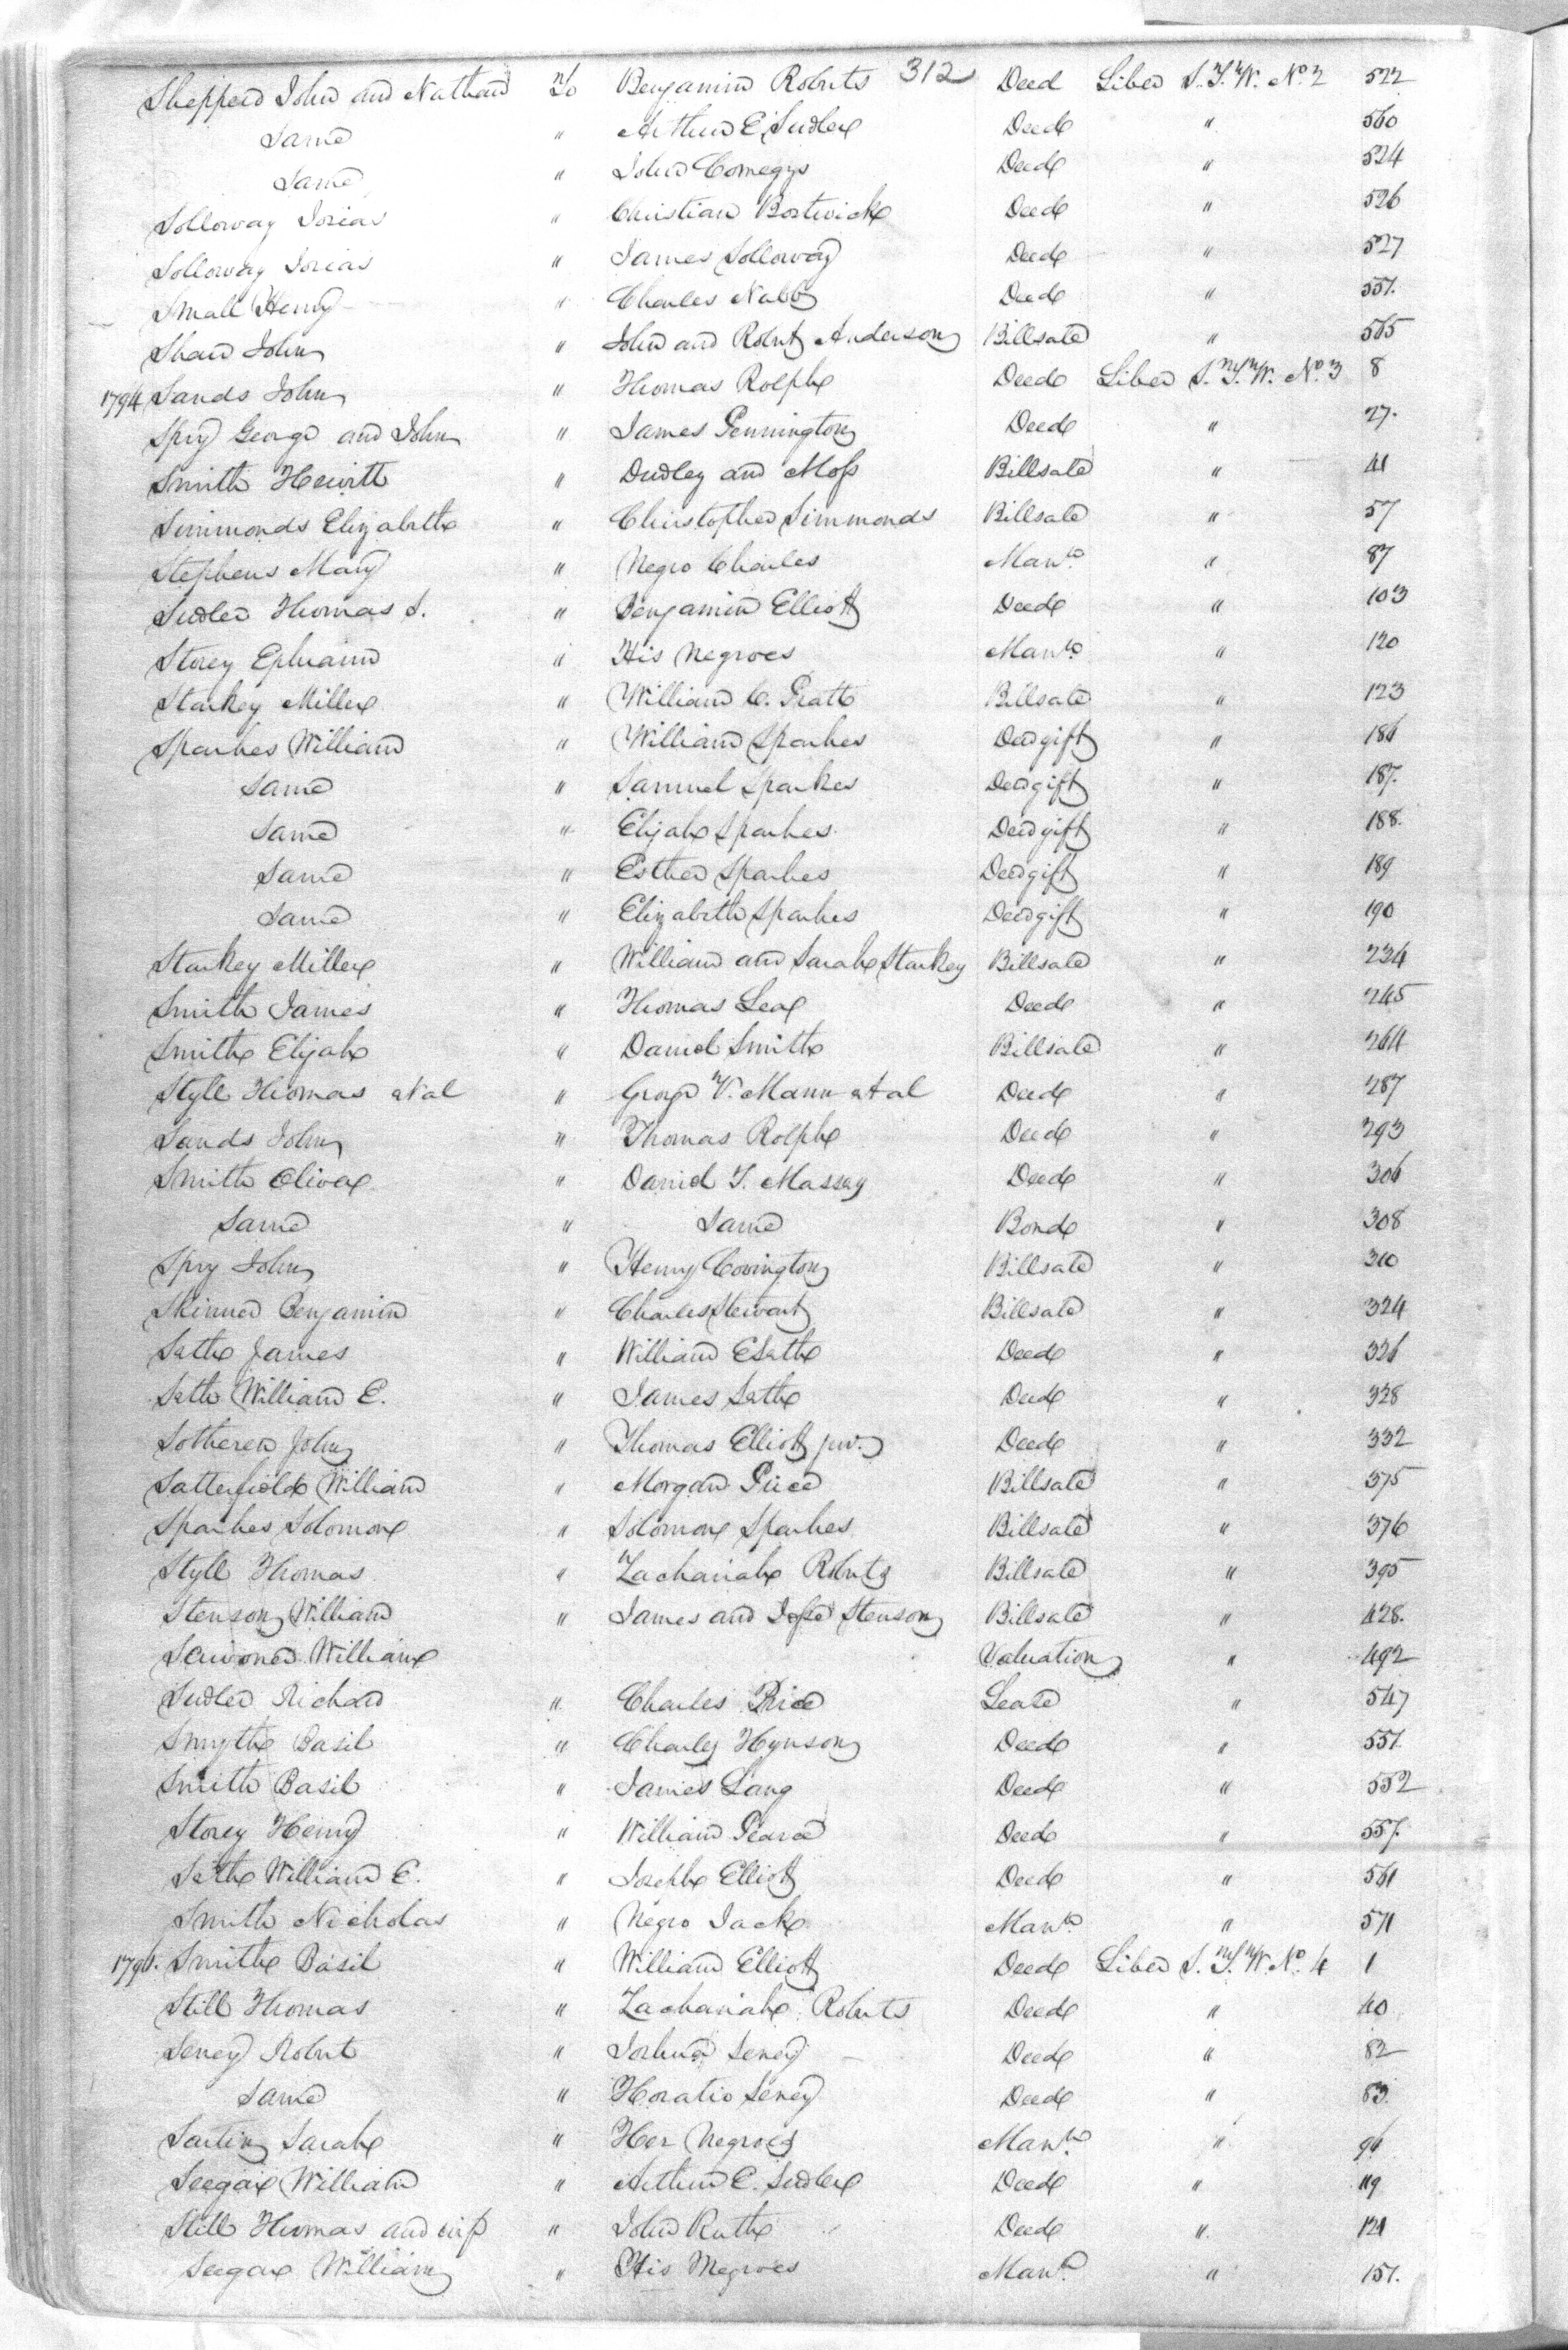 312
Shepperd John and Nathan to Benjamin Roberts Deed Liber S.T.W. No 2 522
Same " Arthur E. Sudler Deed " 560
Same " John Comegys Deed " 524
Solloway Josias " Christian Bostwick Deed " 526
Solloway Josias " James Solloway Deed " 527
Small Henry " Charles Nabb Deed " 551.
Shaw John " John and Robert Anderson Billsale " 565
1794 Sands John " Thomas Rolph Deed Liber S.T.W. No. 3 8
Spry George and John " James Pennington Deed " 27.
Smith Hewitt " Dudley and Moss Billsale " 41
Simmonds Elizabeth " Christopher Simmonds Billsale " 57
Stephens Mary " Negro Charles Mann. " 87
Sudler Thomas S. " Benjamin Elliott Deed " 103
Storey Ephraim " His Negroes Mann. " 120
Starkey Miller " William C. Pratt Billsale " 123
Sparkes William " William Sparkes Deedgift " 186
Same " Samuel Sparkes Deedgift " 187.
Same " Elijah Sparkes Deedgift " 188.
Same " Esther Sparkes Deedgift " 189
Same " Elizabeth Sparkes Deedgift " 190
Starkey Miller " William and Sarah Starkey Billsale " 234
Smith James " Thomas Lea Deed " 245
Smith Elijah " Daniel Smith Billsale " 264
Styll Thomas et al " George V. Mann et al Deed " 287
Sands John " Thomas Rolph Deed " 293
Smith Oliver " Daniel T. Massey Deed " 306
Same " Same Bond " 308
Spry John " Henry Covington Billsale " 310
Skinner Benjamin " Charles Stewart Billsale " 324
Seth James " William E Seth Deed " 326
Seth William E. " James Seth Deed " 328
Sotheren John " Thomas Elliott jun. Deed " 332
Satterfield William " Morgan Price Billsale " 375
Sparkes Solomon " Solomon Sparkes Billsale " 376
Styll Thomas " Zachariah Roberts Billsale " 395
Stenson William " James and Jesse Stenson Billsale " 428.
William Valuation " 492
Sudler Richard " Charles Price Lease " 547
Smyth Basil " Charles Hynson Deed " 551
Smith Basil " James Lang Deed " 552
Storey Henry " William Pearce Deed " 557.
Seth William E. " Joseph Elliott Deed " 561
Smith Nicholas " Negro Jack Mann. " 571
1796. Smith Basil " William Elliott Deed Liber S.T.W. No. 4 1
Still Thomas " Zachariah Roberts Deed " 40
Seney Robert " Joshua Seney Deed " 82
Same " Horatio Seney Deed " 83.
Sarah " Her Negroes Mann. " 96
Seegar William " Arthur E. Sudler Deed " 119
Still Thomas and wife " John Ruth Deed " 121
Seegar William " His Negroes Mann. " 151.